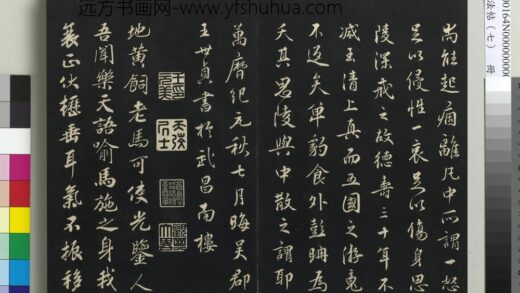 远方书画网-www.yfshuhua.com
尚能起痼離凡中所謂一怒
足以侵性一哀足以傷身思
陵深戒之故德壽三十年不
減玉清上真而五國之游竟
不返矣單豹食外彭聃為
夭其思陵與中散之謂耶
萬曆紀元秋七月晦吳郡
王世貞書於武昌南樓
天弢居士
地黃飼老馬可使光鑒人
吾聞樂天語喻馬施之身我
衰正伏櫪垂耳氣不振移
法帖（七） 冊